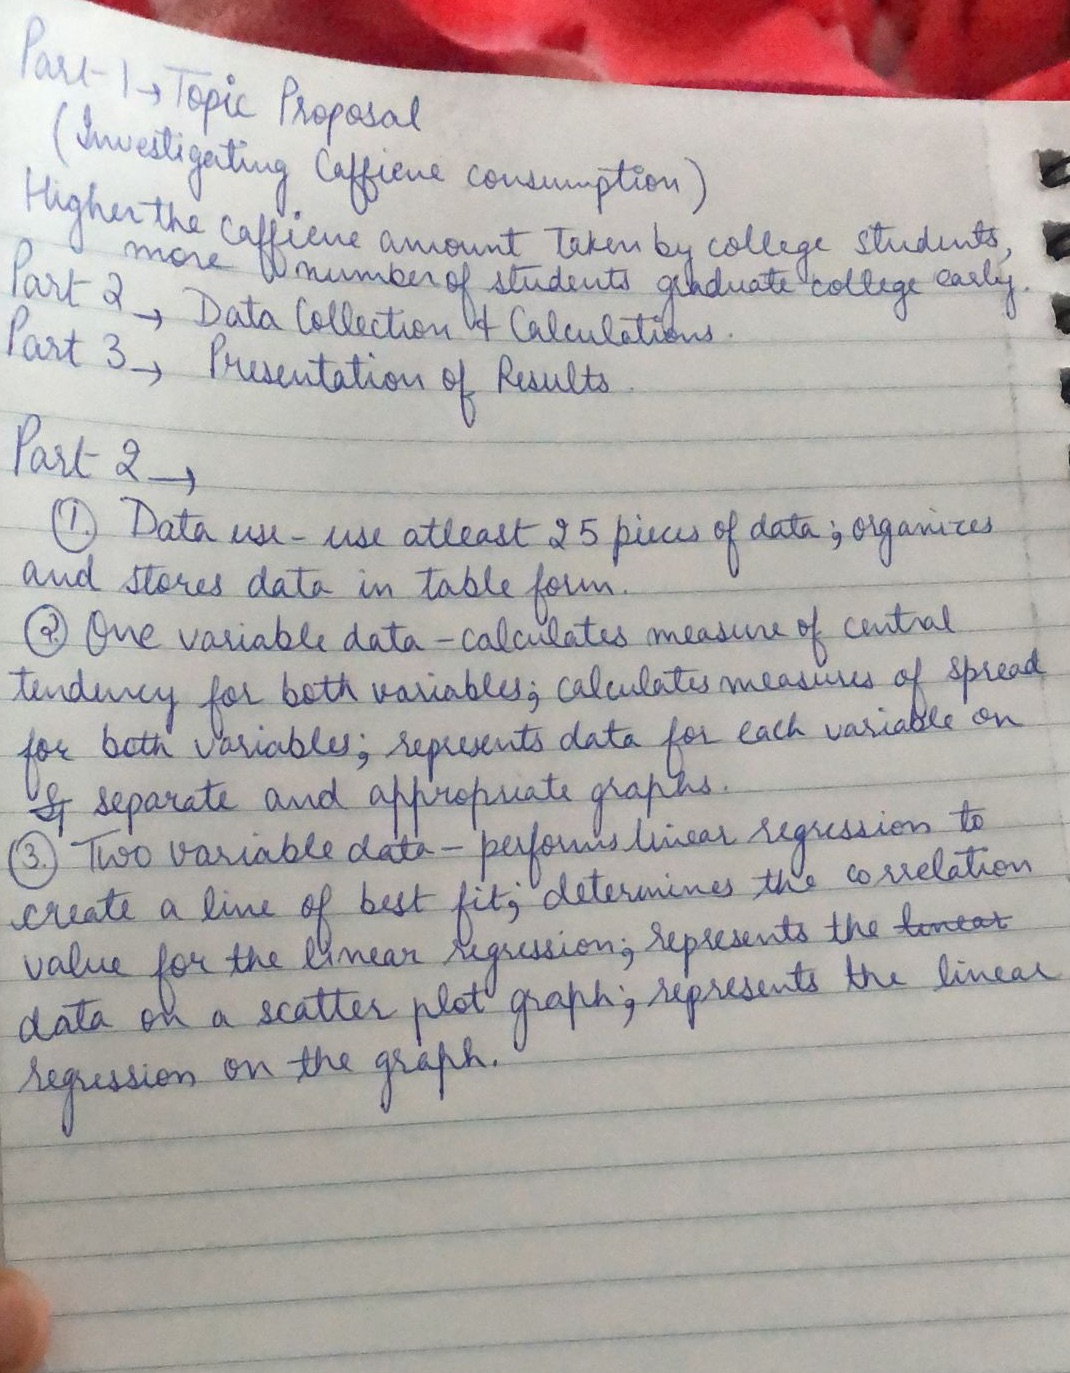 Part-1→Topic Proposal
(Investigating Caffiene consumption)
Higher the caffiene amount taken by college students,
more number of students graduate college early.
Part 2 → Data Collection & Calculations.
Part 3 → Presentation of Results.
Part 2 →
① Data use - use atleast 25 pieces of data; organizes
and stores data in table form.
② One variable data - calculates measure of central
tendency for both variables; calculates measures of spread
for both variables; represents data for each variable on
separate and appropriate graphs.
③ Two variable data - performs linear regression to
create a line of best fit; determines the correlation
value for the linear regression; represents the linear
data on a scatter plot graph; represents the linear
regression on the graph.